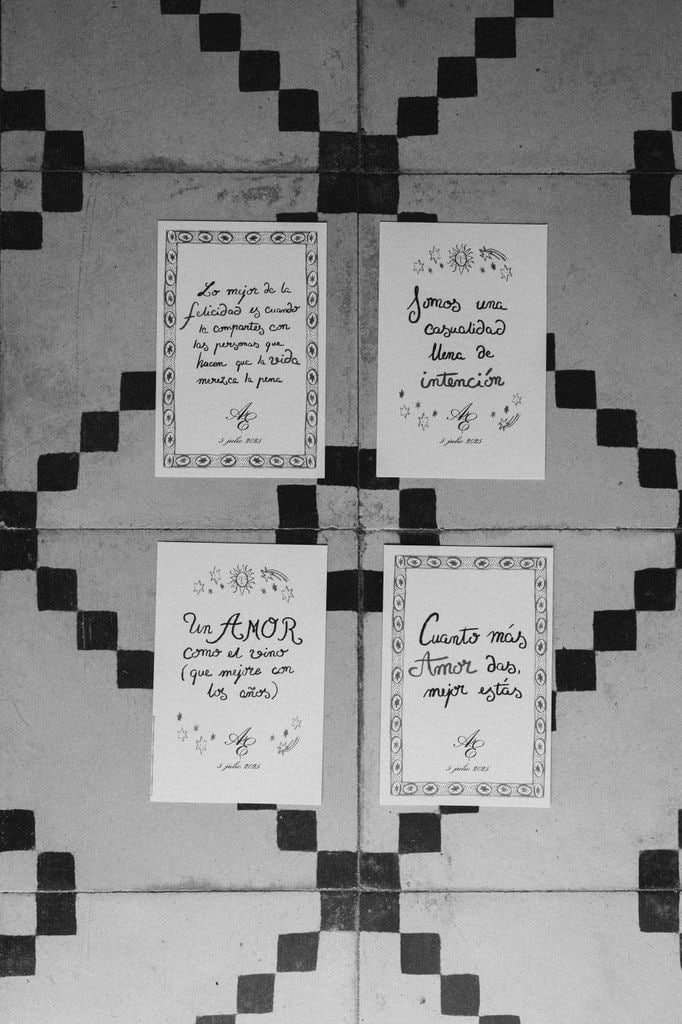 Lo mejor de la
felicidad es cuando
la compartes con
las personas que
hacen que la vida
merezca la pena
AE
5 julio 2025
Somos una
casualidad
llena de
intención
AE
5 julio 2025
Un AMOR
como el vino
(que mejore con
los años)
AE
5 julio 2025
Cuanto más
Amor das,
mejor estás
AE
5 julio 2025